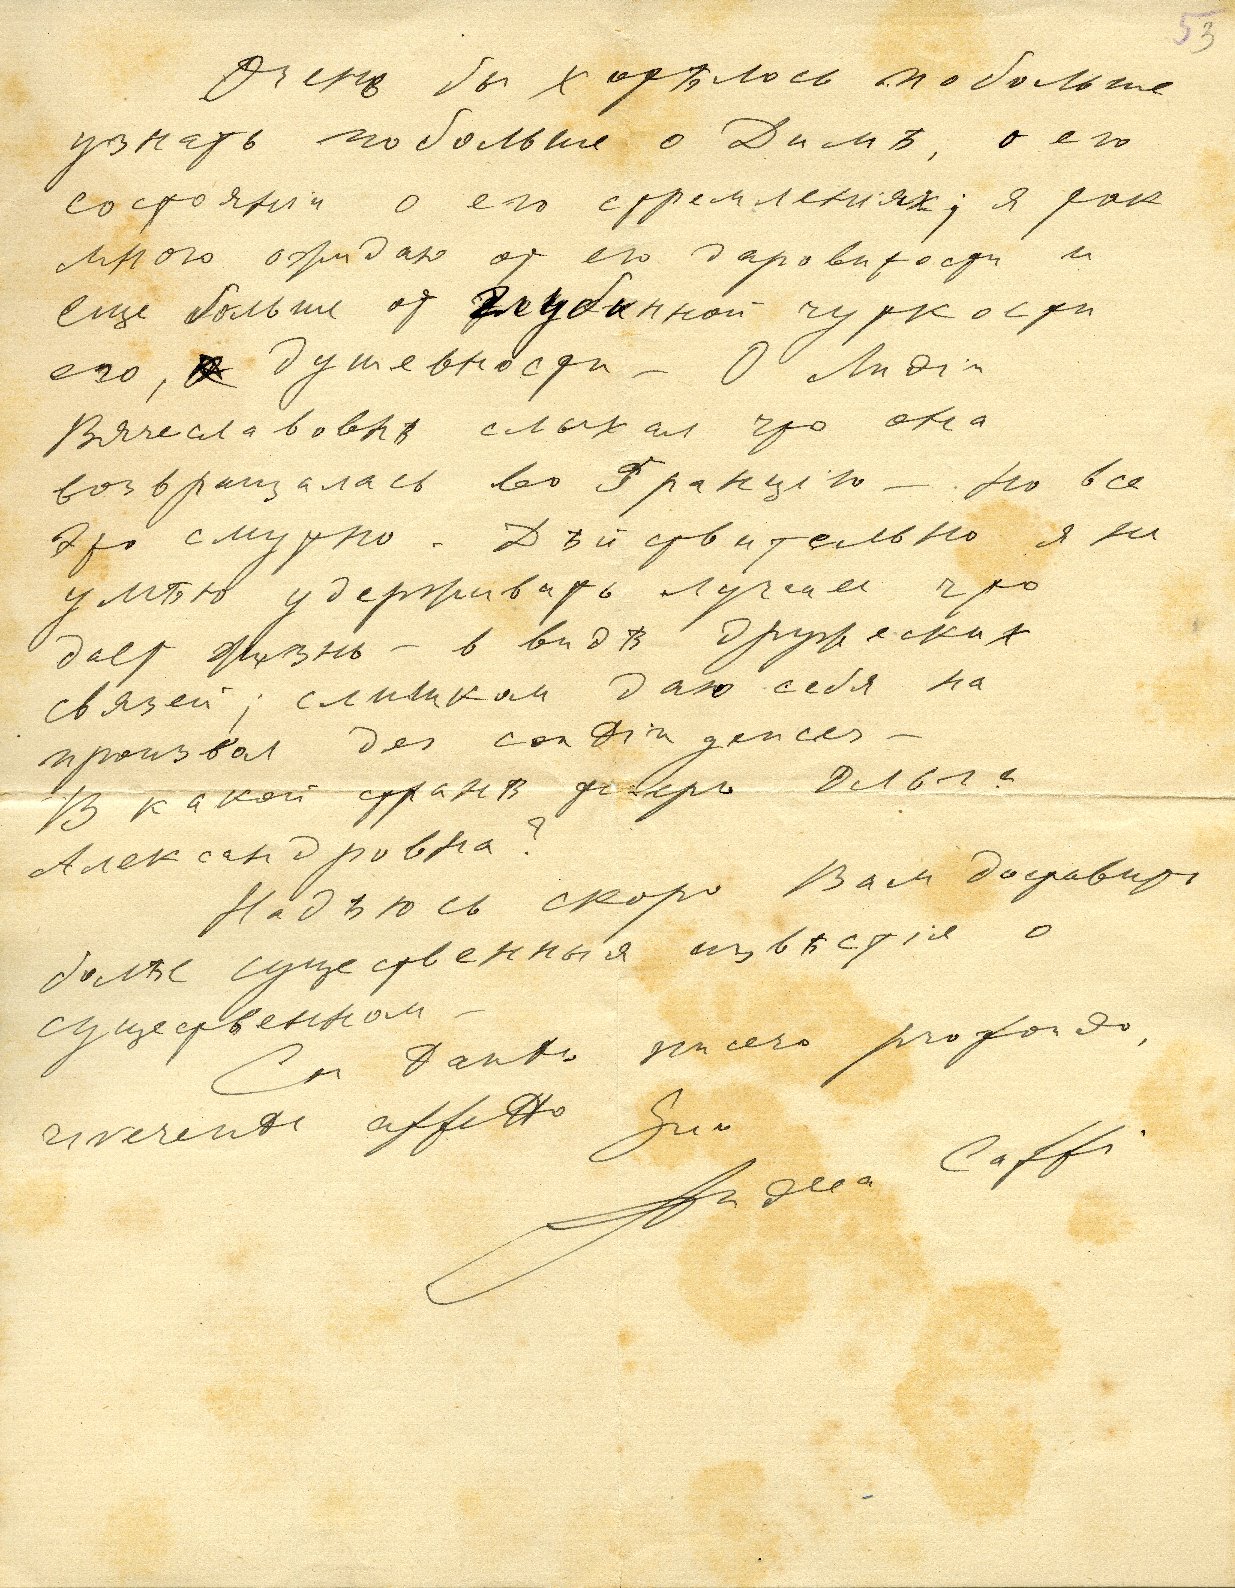 53
Очень бы хотѣлось побольше
узнать побольше о Димѣ, о его
состоянiи о его стремленiях; я так
много ожидаю от его даровитости и
еще больше от глубинной чуткости
его, душевности – О Лидiи
Вячеславовнѣ слыхал что она
возвращалась во Францiю – но все
это смутно. Дѣйствительно я не
умѣю удерживать лучшее что
дает жизнь – в видѣ дружеских
связей; слишком даю себя на
произвол des contingences –
В какой странѣ теперь Ольга
Александровна?
Надѣюсь скоро Вам доставить
болѣе существенныя извѣстiя о
существенном –
Con tanto sincero profondo,
riverente affetto Suo
Andrea Caffi